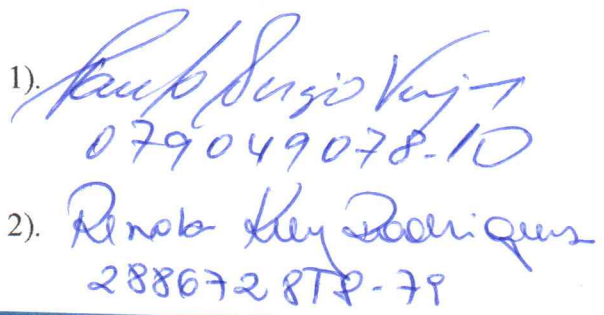 1). Paulo Sergio
079049078-10
2). Renata Rodrigues
288672878-79